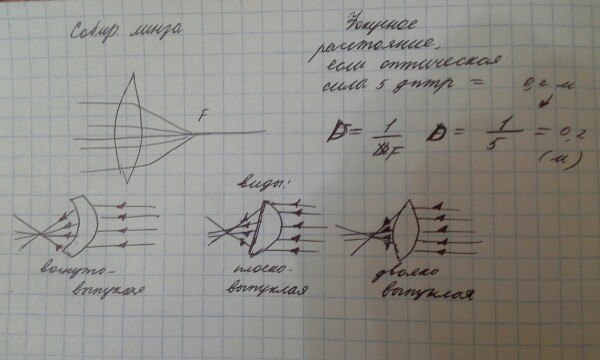 Собир. линза
Фокусное
расстояние,
если оптическая
сила 5 дптр = 0,2 м
F
D = 1/F D = 1/5 = 0,2
(м)
виды:
вогнуто-
выпуклая
плоско-
выпуклая
двояко
выпуклая